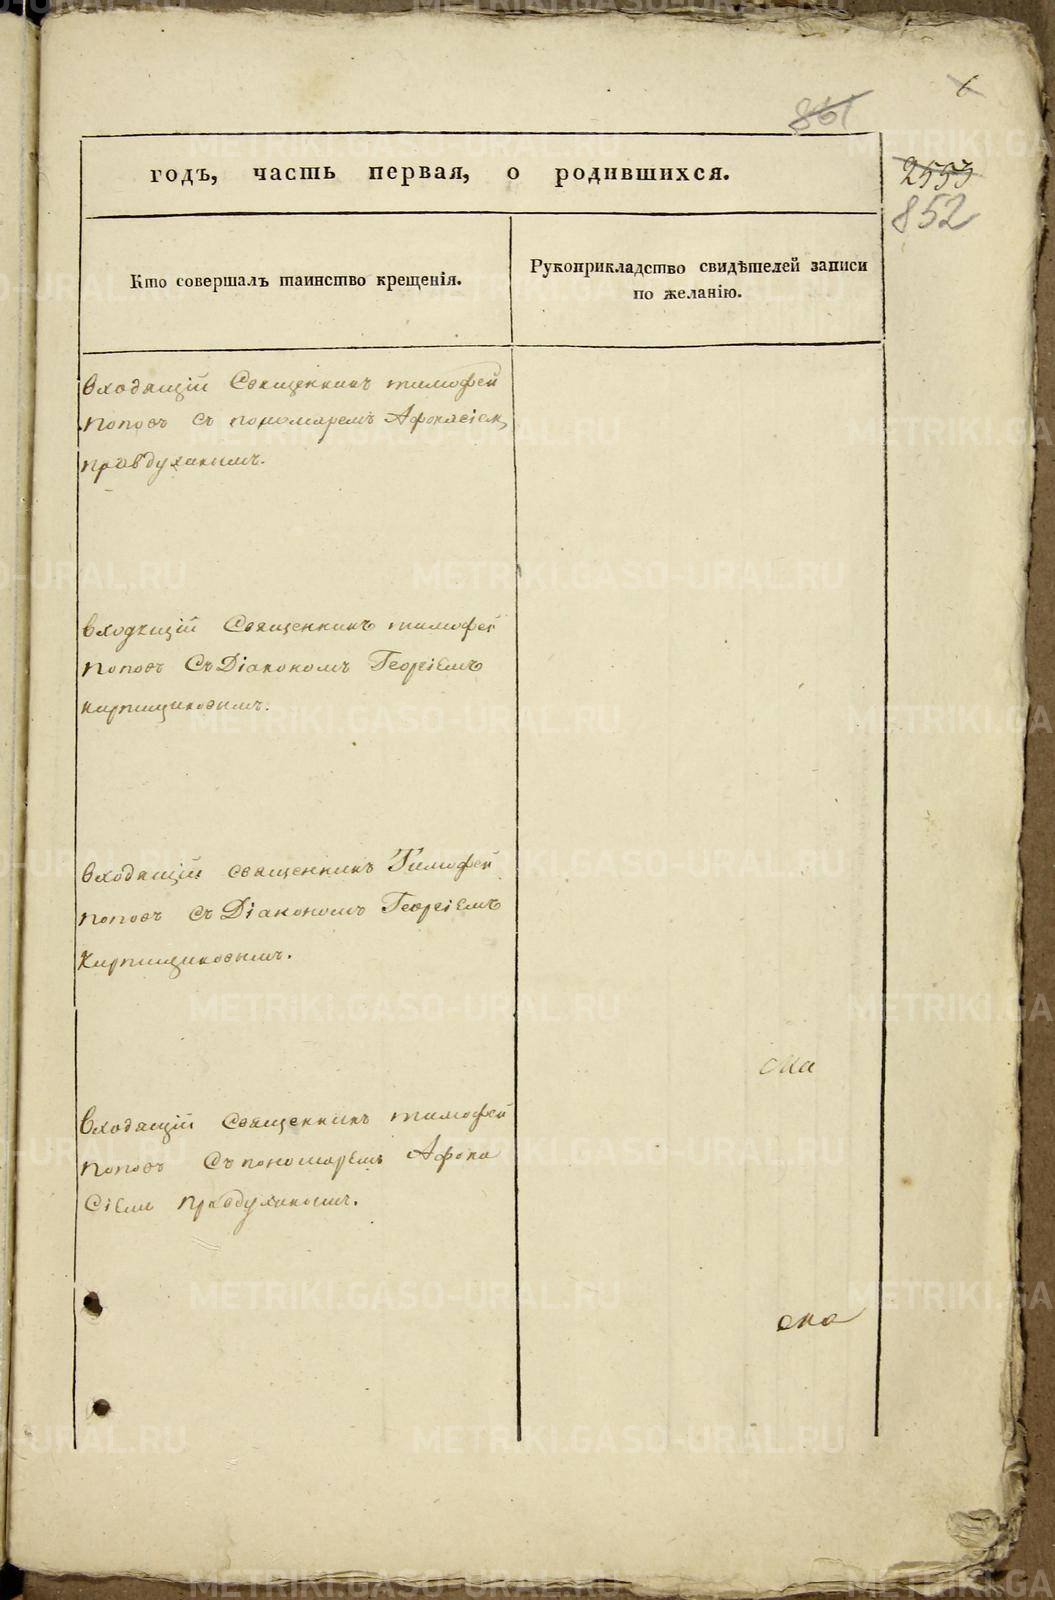 861
2553
852
годъ, часть первая, о родившихся.
Кто совершалъ таинство крещенія.
Рукоприкладство свидѣтелей записи
по желанію.
входящій Священникъ тимофей
поповъ съ пономаремъ Афонасіем
правдухинымъ.
входящій Священникъ тимофей
поповъ Съ Діакономъ Георгіемъ
кирпищиковымъ.
входящій священникъ Тимофей
поповъ съ Діакономъ Георгіемъ
Кирпищиковымъ.
ска
входящій священникъ тимофей
поповъ Съ пономаремъ Афона
Сіемъ правдухиномъ.
METRIKI.GASO-URAL.RU